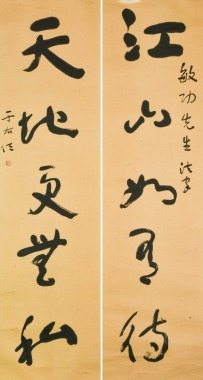 江山如有待
敏功先生法家
天地更無私
于右任